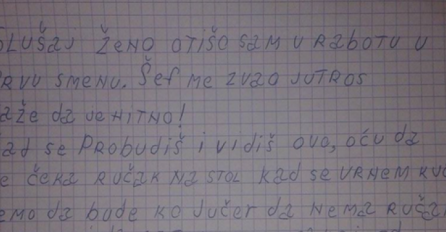 OLUŠAJ ŽENO OTIŠO SAM U RABOTU U
RVU SMENU. ŠEF ME ZVAO JUTROS
AŽE DA JE HITNO!
AD SE PROBUDIŠ I VIDIŠ OVO, OĆU DA
E ČEKA RUČAK NA STOL KAD SE VRNEM KUĆ
EMO DA BUDE KO JUČER DA NEMA RUČA